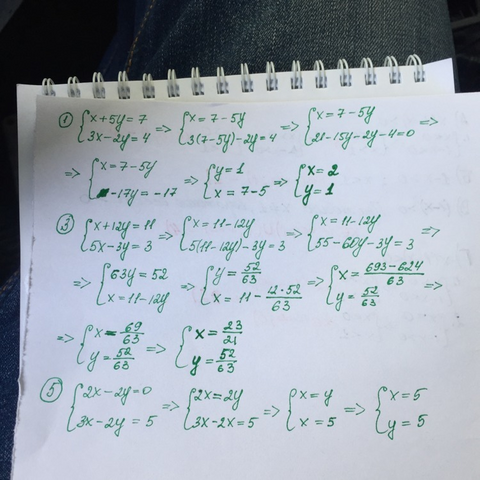 ① { x+5y=7 3x-2y=4 => { x=7-5y 3(7-5y)-2y=4 => { x=7-5y 21-15y-2y-4=0 =>
=> { x=7-5y -17y=-17 => { y=1 x=7-5 => { x=2 y=1
③ { x+12y=11 5x-3y=3 => { x=11-12y 5(11-12y)-3y=3 => { x=11-12y 55-60y-3y=3 =>
=> { 63y=52 x=11-12y => { y=52/63 x=11-12·52/63 => { x=693-624/63 y=52/63 =>
=> { x=69/63 y=52/63 => { x=23/21 y=52/63
⑤ { 2x-2y=0 3x-2y=5 => { 2x=2y 3x-2x=5 => { x=y x=5 => { x=5 y=5